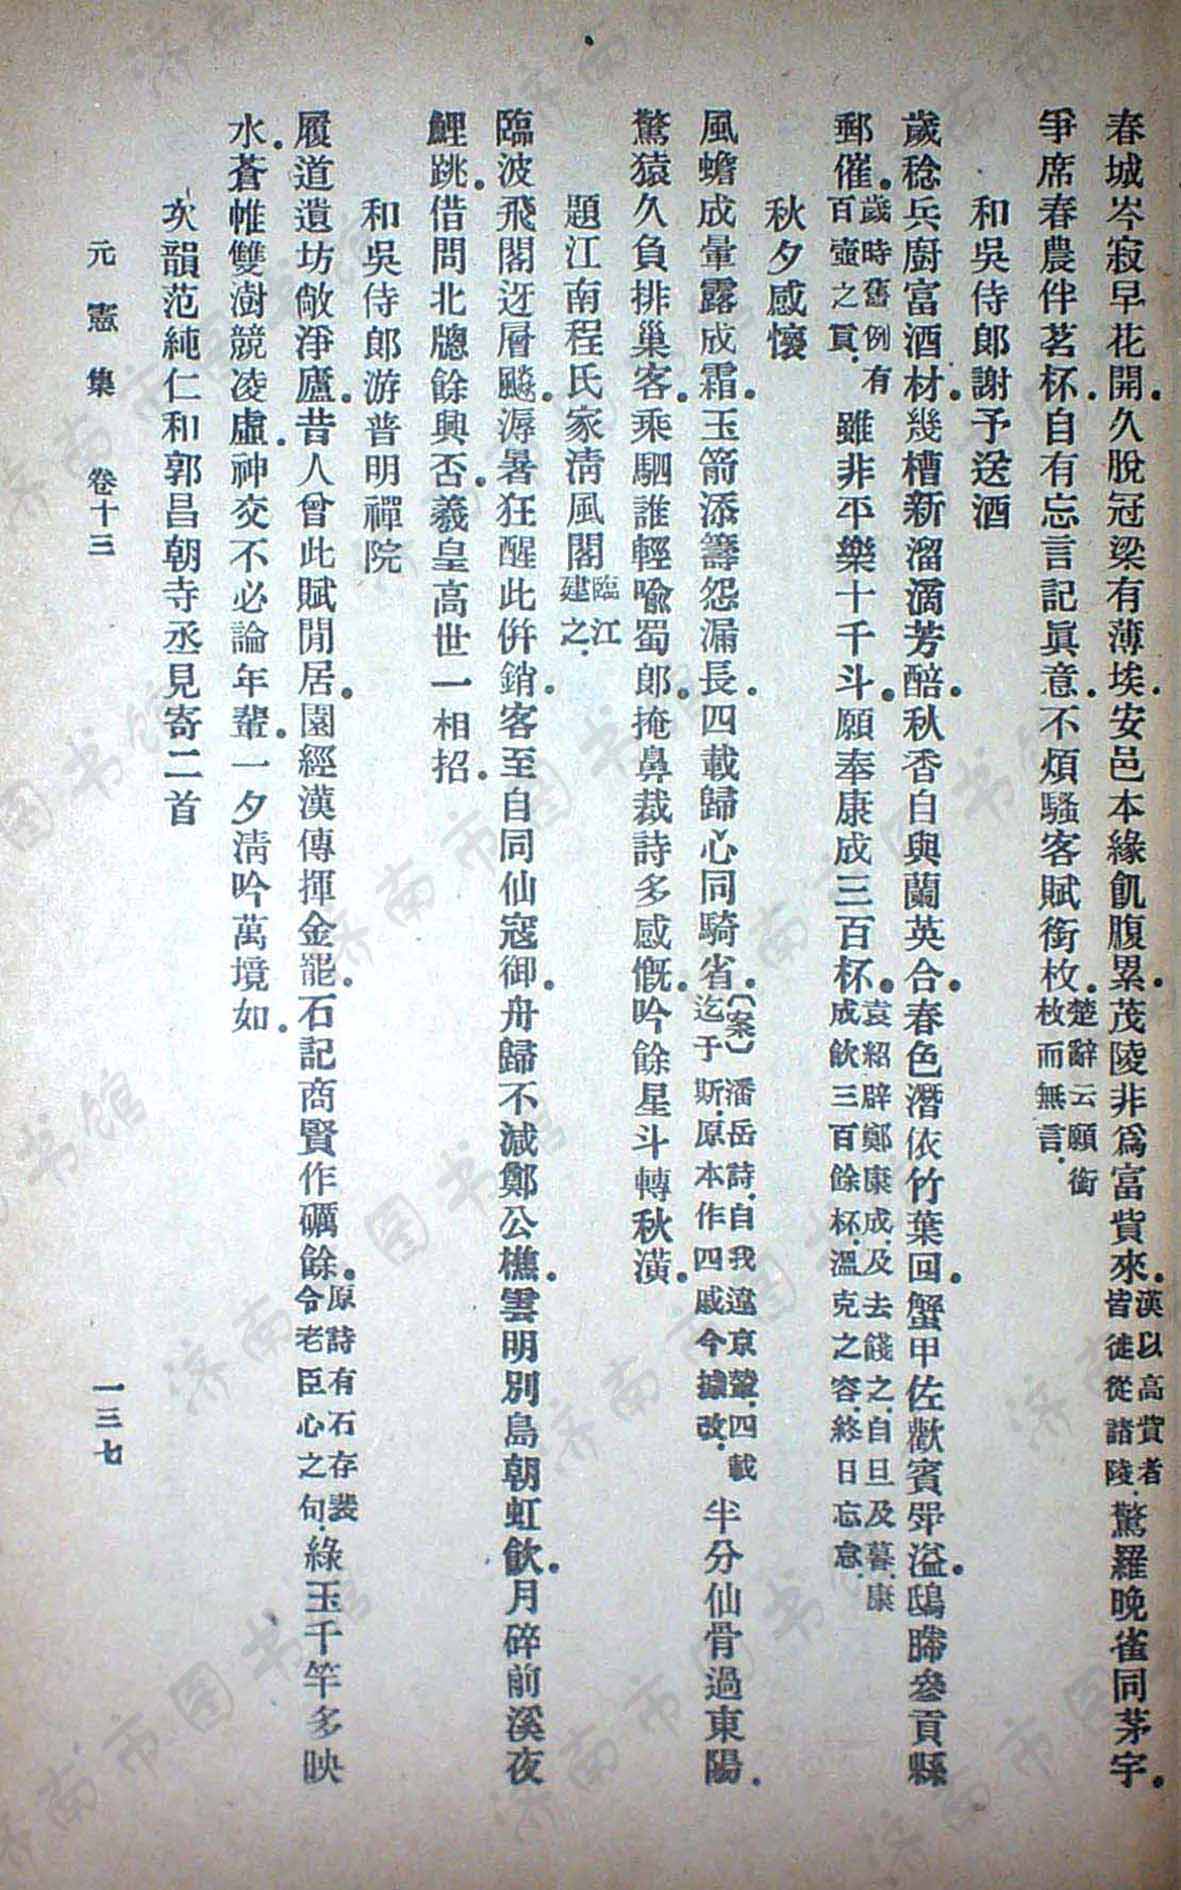 春城岑寂早花開。久脫冠梁有薄埃。安邑本緣飢腹累。茂陵非爲富貲來。漢以高貲者皆徙從諸陵。驚羅晚雀同茅宇。
爭席春農伴茗杯。自有忘言記眞意。不煩騷客賦銜枚。楚辭云願銜枚而無言。
和吳侍郎謝予送酒
歲稔兵廚富酒材。幾槽新溜滴芳醅。秋香白與蘭英合。春色潛依竹葉回。蟹甲佐歡賓斝溢。鴟㬹參貢縣
郵催。歲時舊例有百壺之貢。雖非平樂十千斗。願奉康成三百杯。袁紹辟鄭康成。及去餞之。自旦及暮。康成飲三百餘杯。溫克之容。終日忘怠。
秋夕感懷
風蟾成暈露成霜。玉箭添籌怨漏長。四載歸心同騎省。〔案〕潘岳詩。自我違京輦。四載迄于斯。原本作四戚今據改。半分仙骨過東陽。
驚猿久負排巢客。乘駟誰輕喩蜀郎。掩鼻裁詩多感慨。吟餘星斗轉秋潢。
題江南程氏家淸風閣臨江建之。
臨波飛閣迓層飇。溽暑狂酲此倂銷。客至自同仙寇御。舟歸不減鄭公樵。雲明別島朝虹飮。月碎前溪夜
鯉跳。借問北牕餘興否。羲皇高世一相招。
和吳侍郎游普明禪院
履道遺坊敞淨廬。昔人曾此賦閒居。園經漢傳揮金罷。石記商賢作礪餘。原詩有石存裴令老臣心之句。綠玉千竿多映
水。蒼帷雙澍競凌虛。神交不必論年輩。一夕淸吟萬境如。
次韻范純仁和郭昌朝寺丞見寄二首
元憲集 卷十三 一三七